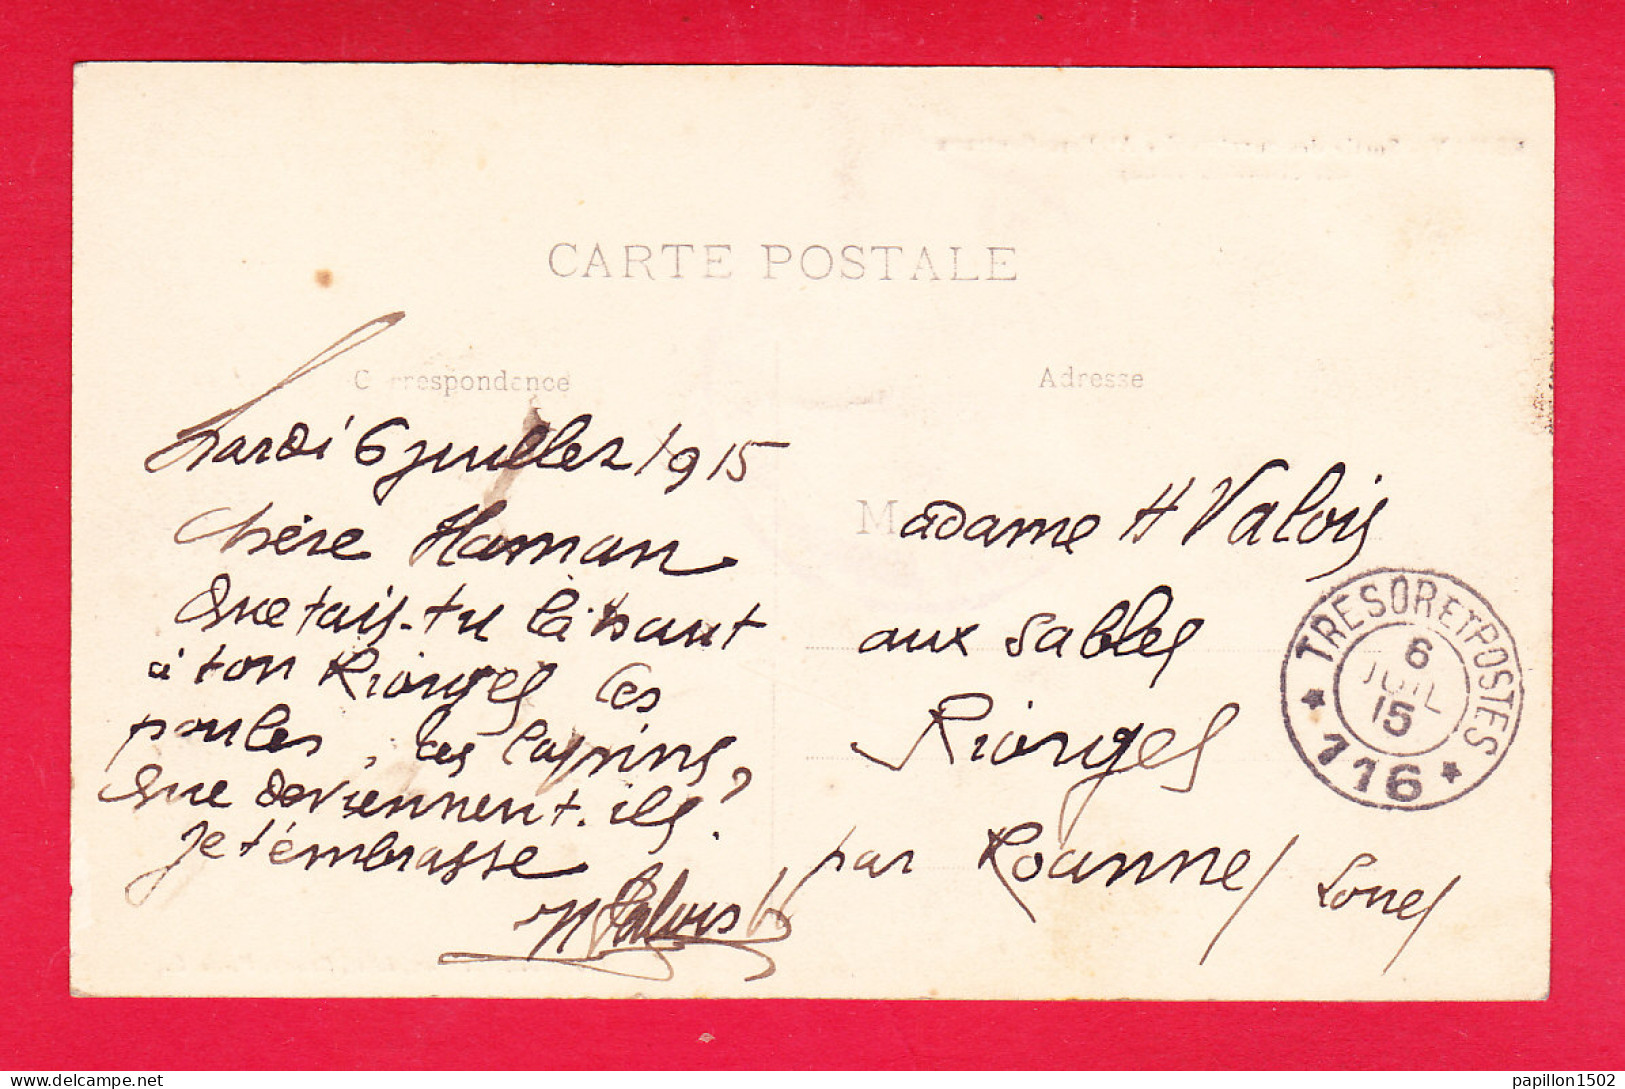 CARTE POSTALE
Correspondance
Adresse
Mardi 6 juillet 1915
Chère Maman
Que fais-tu là haut
à ton Riorges les
poules, les lapins,
que deviennent-ils?
Je t'embrasse
Valois
Madame H Valois
aux Sables
Riorges
par Roanne / Loire /
TRESOR ET POSTES
6
JUIL
15
* 116 *
papillon1502